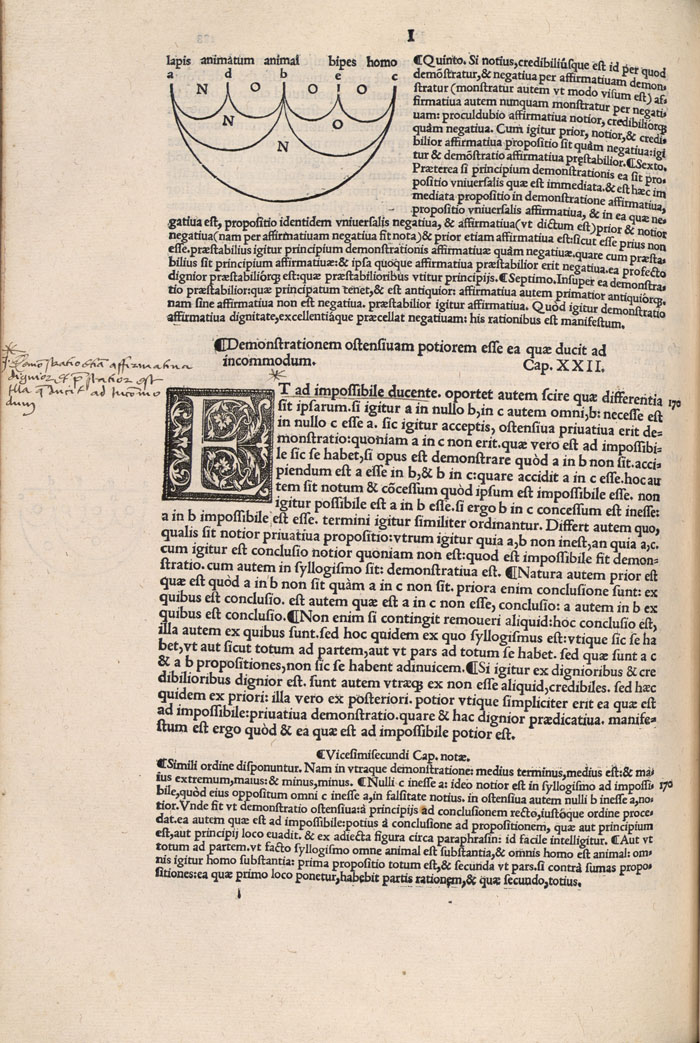 I
lapis animatum animal bipes homo
a d b e c
N O O O
N O
N
¶Quinto. Si notius, credibiliúsque est id per quod
demõstratur,& negatiua per affirmatiuam demon-
stratur (monstratur autem vt modo visum est) af-
firmatiua autem nunquam monstratur per negati-
uam: proculdubio affirmatiua prior, notior, credibiliorq3
quàm negatiua. Cum igitur prior, notior,& credi-
bilior affirmatiua propositio sit quàm negatiua:igi
tur & demõstratio affirmatiua pręstabilior.¶Sexto.
Præterea si principium demonstrationis ea sit pro-
positio vniuersalis quæ est immediata.& est hæc im
mediata propositio in demonstratione affirmatiua,
propositio vniuersalis affirmatiua, & in ea quæ ne-
gatiua est, propositio identidem vniuersalis negatiua, & affirmatiua(vt dictum est)prior & notior
negatiua(nam per affirmatiuam negatiua fit nota)& prior etiam affirmatiua est:sicut esse prius non
esse.præstabilius igitur principium demonstrationis affirmatiuæ quàm negatiuæ.quare cum præsta-
bilius sit principium affirmatiuæ:& ipsa quoque affirmatiua præstabilior erit negatiua.ea profecto
dignior præstabiliorq3 est:quæ præstabilioribus vtitur principijs.¶Septimo.Insuper ea demonstra-
tio præstabilior:quæ principatum tenet,& est antiquior: affirmatiua autem primatior antiquiorq3.
nam sine affirmatiua non est negatiua. præstabilior igitur affirmatiua. Quòd igitur demonstratio
affirmatiua dignitate,excellentiáque præcellat negatiuam: his rationibus est manifestum.
¶Demonstrationem ostensiuam potiorem esse ea quæ ducit ad
incommodum. Cap. XXII.
* Demõstratio etiã affirmatiua
dignior et p̃stãtior est
illa q̃ ducit ad Incõmo
dum
*
ET ad impossibile ducente. oportet autem scire quæ differentia 170
sit ipsarum.si igitur a in nullo b,in c autem omni,b: necesse est
in nullo c esse a. sic igitur acceptis, ostensiua priuatiua erit de-
monstratio:quoniam a in c non erit.quæ vero est ad impossibi-
le sic se habet,si opus est demonstrare quòd a in b non sit.acci-
piendum est a esse in b,& b in c:quare accidit a in c esse.hoc au
tem sit notum & cõcessum quòd ipsum est impossibile esse. non
igitur possibile est a in b esse.si ergo b in c concessum est inesse:
a in b impossibile est esse. termini igitur similiter ordinantur. Differt autem quo,
qualis sit notior priuatiua propositio:vtrum igitur quia a,b non inest,an quia a,c.
cum igitur est conclusio notior quoniam non est:quod est impossibile fit demon-
stratio.cum autem in syllogismo sit: demonstratiua est. ¶Natura autem prior est
quæ est quòd a in b non sit quàm a in c non sit. priora enim conclusione sunt: ex
quibus est conclusio. est autem quæ est a in c non esse, conclusio: a autem in b ex
quibus est conclusio.¶Non enim si contingit remoueri aliquid:hoc conclusio est,
illa autem ex quibus sunt.sed hoc quidem ex quo syllogismus est:vtique sic se ha
bet,vt aut sicut totum ad partem,aut vt pars ad totum se habet. sed quæ sunt a c
& a b propositiones,non sic se habent adinuicem.¶Si igitur ex dignioribus & cre
dibilioribus dignior est. sunt autem vtræq3 ex non esse aliquid,credibiles. sed hæc
quidem ex priori: illa vero ex posteriori. potior vtique simpliciter erit ea quæ est
ad impossibile:priuatiua demonstratio.quare & hac dignior prædicatiua. manife-
stum est ergo quòd & ea quæ est ad impossibile potior est.
¶Vicesimisecundi Cap. notæ.
¶Simili ordine disponuntur. Nam in vtraque demonstratione: medius terminus,medius est:& ma-
ius extremum,maius:& minus,minus. ¶Nulli c inesse a: ideo notior est in syllogismo ad impossi- 170
bile,quòd eius oppositum omni c inesse a,in falsitate notius. in ostensiua autem nulli b inesse a,no-
tior.Vnde fit vt demonstratio ostensiua:à principijs ad conclusionem recto,iustóque ordine proce-
dat.ea autem quæ est ad impossibile:potius à conclusione ad propositionem, quæ aut principium
est,aut principij loco euadit. & ex adiecta figura circa paraphrasin: id facile intelligitur. ¶Aut vt
totum ad partem.vt facto syllogismo omne animal est substantia,& omnis homo est animal: om-
nis igitur homo substantia: prima propositio totum est,& secunda vt pars.si contrà sumas propo-
sitiones:ea quæ primo loco ponetur,habebit partis rationem,& quæ secundo,totius.